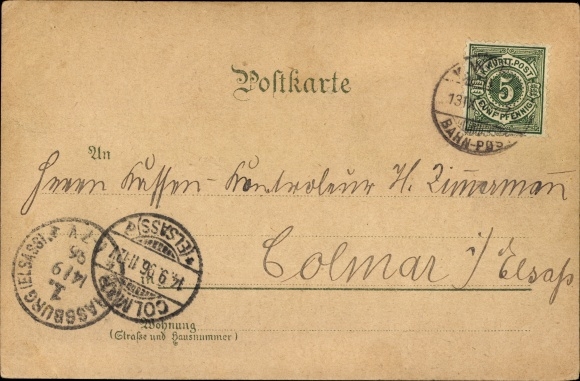 Postkarte
K. WÜRTT. POST
5
FÜNF PFENNIG
13 IX
BAHN-POS
An
Herrn Kassen-Kontroleur H. Zimmermann
Colmar i/Elsaß
STRASSBURG (ELSASS)
14/9
96
7-8V
1.
COLMAR (ELSASS)
14.9.96
11-12V
Wohnung
(Straße und Hausnummer)